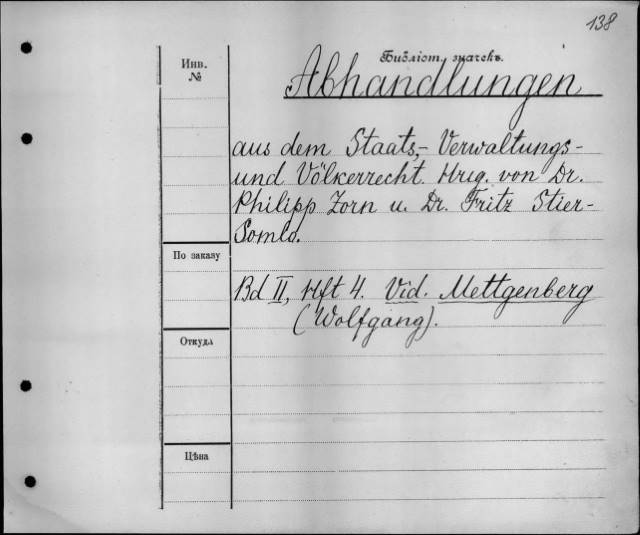 138
Инв.
№
Библіот. значекъ.
Abhandlungen
aus dem Staats,- Verwaltungs-
und Völkerrecht. Hrsg. von Dr.
Philipp Zorn u. Dr. Fritz Stier-
Somlo.
По заказу
Bd II, Hft 4. Vid. Mettgenberg
(Wolfgang).
Откуда
Цѣна